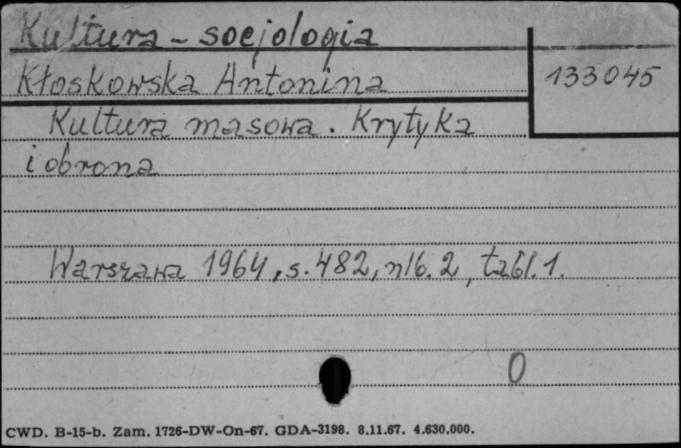 Kultura - socjologia
Kłoskowska Antonina
133045
Kultura masowa. Krytyka
i obrona
Warszawa 1964, s. 482, nlb. 2, tabl. 1.
0
CWD. B-15-b. Zam. 1726-DW-On-67. GDA-3198. 8.11.67. 4.630.000.